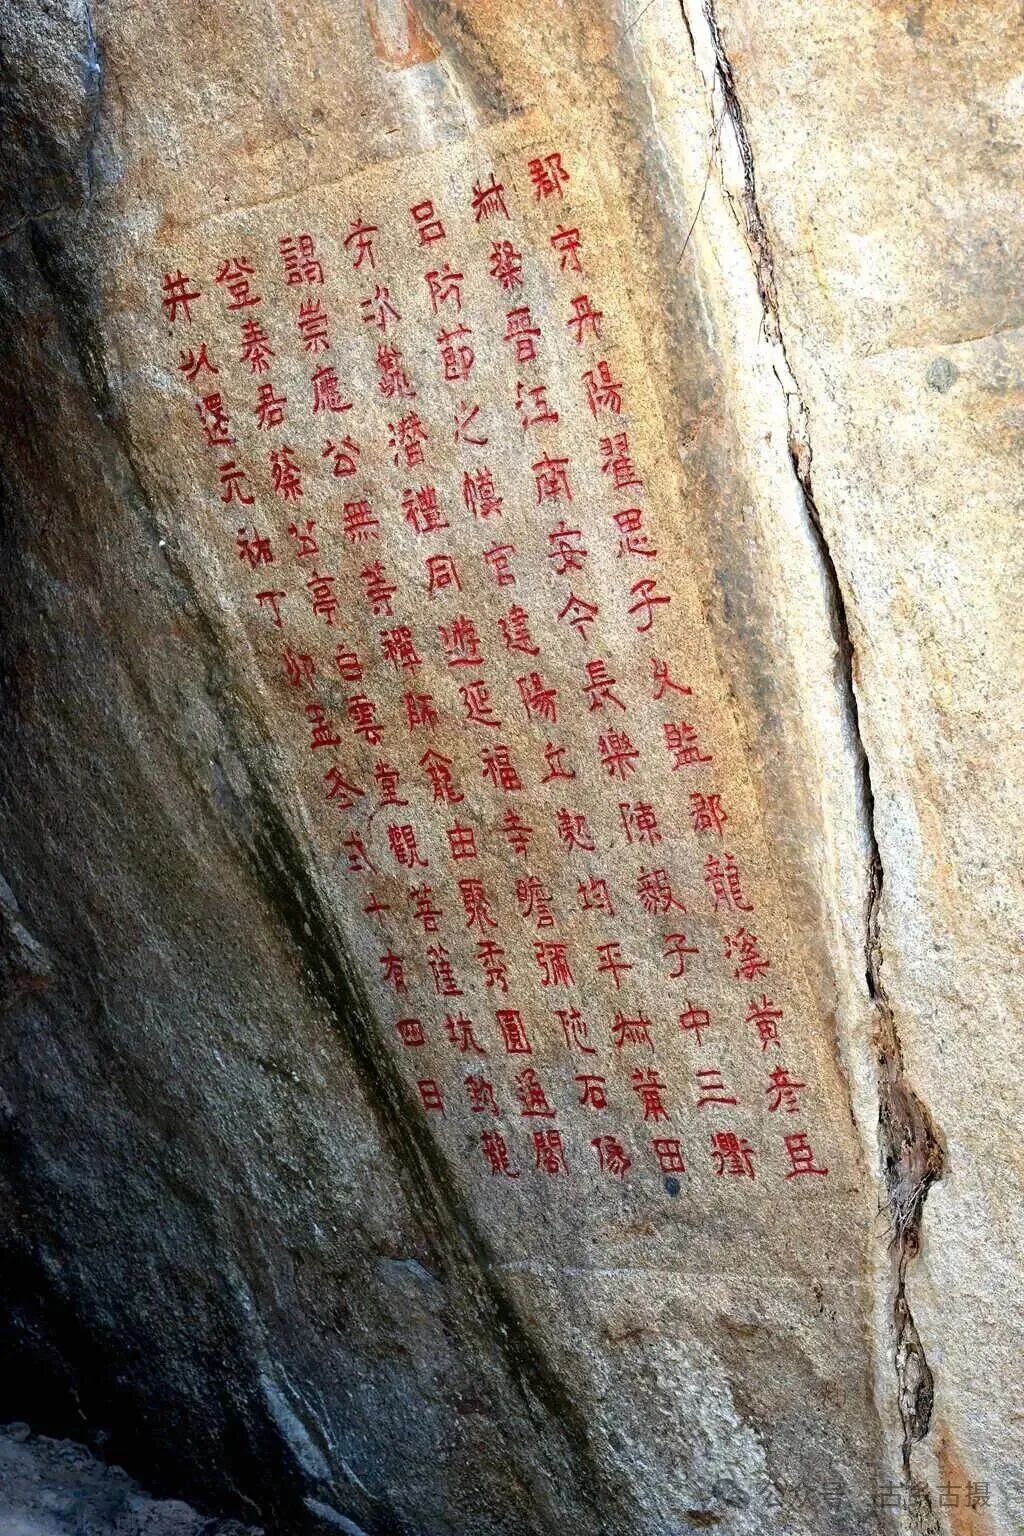 郡守丹陽翟思子久監郡龍溪黄彦臣
叔粲晉江南安令長樂陳毅子中三衢
吕防節之幙官建陽丘勉均平叔莆田
方次夔潜禮同遊延福寺瞻彌陁石像
謁崇應公無等禪師龕由聚秀圓通閣
登秦君蔡公亭白雲堂觀菩薩坑釣龍
井以還元祐丁卯孟冬弍十有四日
公众号